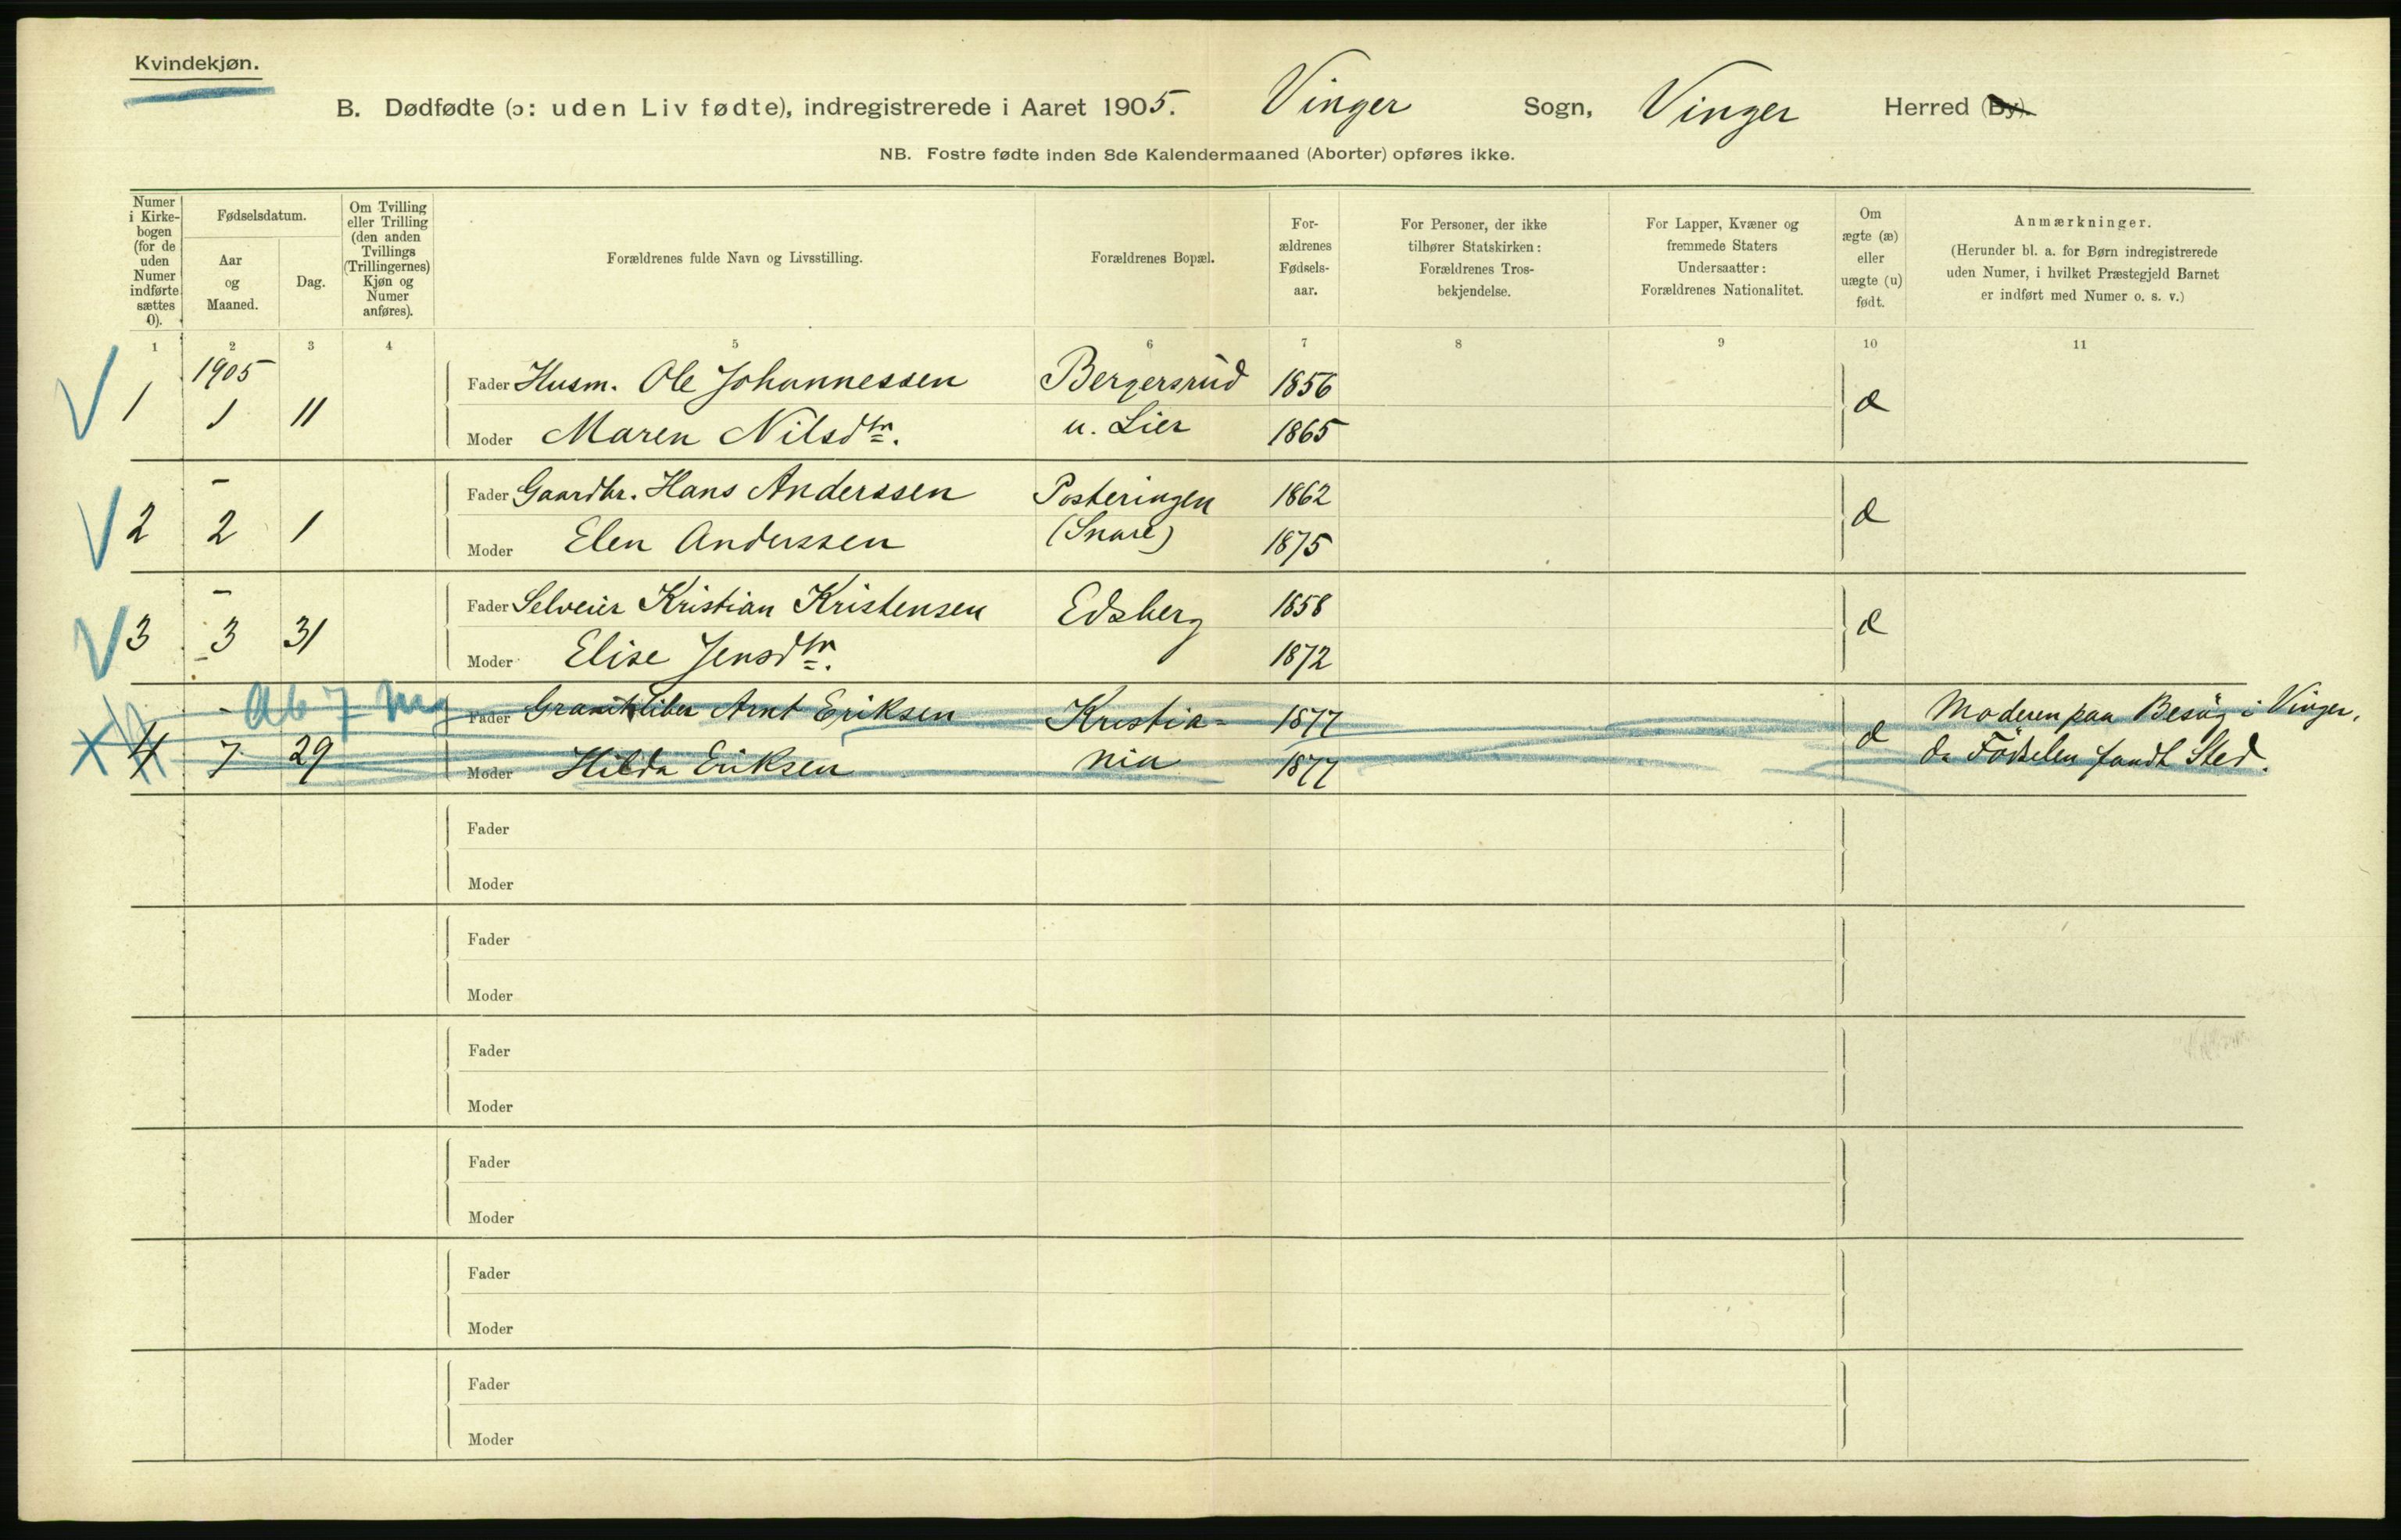 Kvindekjøn.
B. Dødfødte (ɔ: uden Liv fødte), indregistrerede i Aaret 1905. Vinger Sogn, Vinger Herred (By).
NB. Fostre fødte inden 8de Kalendermaaned (Aborter) opføres ikke.
Numer i Kirke-
bogen
(for de
uden
Numer
indførte
sættes
0).
Fødselsdatum.
Aar
og
Maaned.
Dag.
Om Tvilling
eller Trilling
(den anden
Tvillings
(Trillingernes)
Kjøn og
Numer
anføres).
Forældrenes fulde Navn og Livsstilling.
Forældrenes Bopæl.
For-
ældrenes
Fødsels-
aar.
For Personer, der ikke
tilhører Statskirken:
Forældrenes Tros-
bekjendelse.
For Lapper, Kvæner og
fremmede Staters
Undersaatter:
Forældrenes Nationalitet.
Om
ægte (æ)
eller
uægte (u)
født.
Anmærkninger.
(Herunder bl. a. for Børn indregistrerede
uden Numer, i hvilket Præstegjeld Barnet
er indført med Numer o. s. v.)
1 2 3 4 5 6 7 8 9 10 11
1905
Fader Husm. Ole Johannessen Bergersrud 1856
1 1 11 æ
Moder Maren Nilsdtr. u. Lier 1865
-
Fader Gaardbr. Hans Anderssen Posteringen 1862
2 2 1 æ
Moder Elen Anderssen (Snare) 1875
-
Fader Selveier Kristian Kristensen Edsberg 1858
3 3 31 æ
Moder Elise Jensdtr. 1872
- Ab 7 Mg
Fader Arnt Eriksen Kristia- 1877 Moderen paa Besøg i Vinger,
4 7 29 æ
Moder Hilda Eriksen nia 1877 da Fødselen fandt Sted.
Fader
Moder
Fader
Moder
Fader
Moder
Fader
Moder
Fader
Moder
Fader
Moder